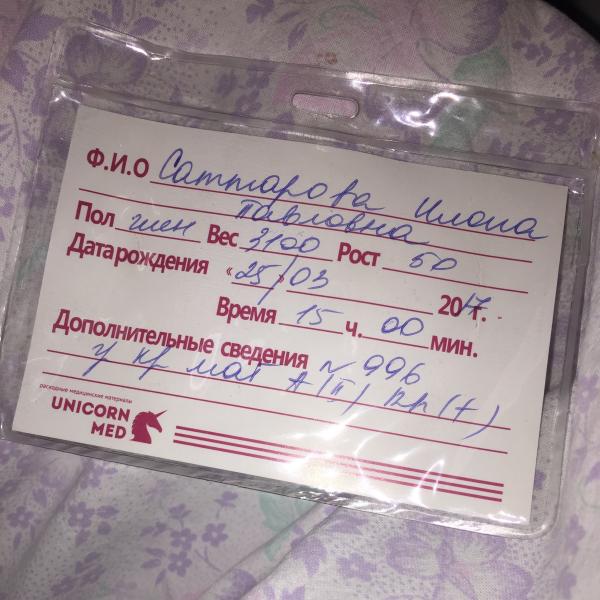 Ф.И.О Саттарова Илона
Павловна
Пол жен Вес 3100 Рост 50
Дата рождения «25» 03 2017г.
Время 15 ч. 00 мин.
Дополнительные сведения N 996
гр мат A(II) Rh(+)
расходные медицинские материалы
UNICORN
MED